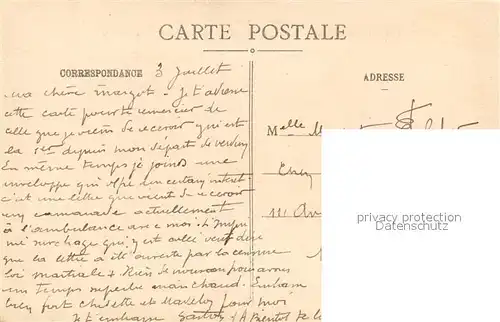 CARTE POSTALE
CORRESPONDANCE 3 Juillet
ADRESSE
ma chère margot. Je t'adresse
cette carte pour te remercier de
celle que je viens de recevoir qui est
la depuis mon départ de verdun
En même temps je joins une
enveloppe qui d'un certain interet
c'est une lettre que vient de recevoir
un camarade actuellement
à l'ambulance avec moi.
surchage qui y est collé veut dire
que la lettre a été ouverte par la censure
loi martiale Rien de nouveau pour
un temps superbe mais chaud. Embrasse
bien fort et pour moi
Je t'embrasse Gaston A Bientot
Melle
Chez
111 Av
privacy protection
Datenschutz